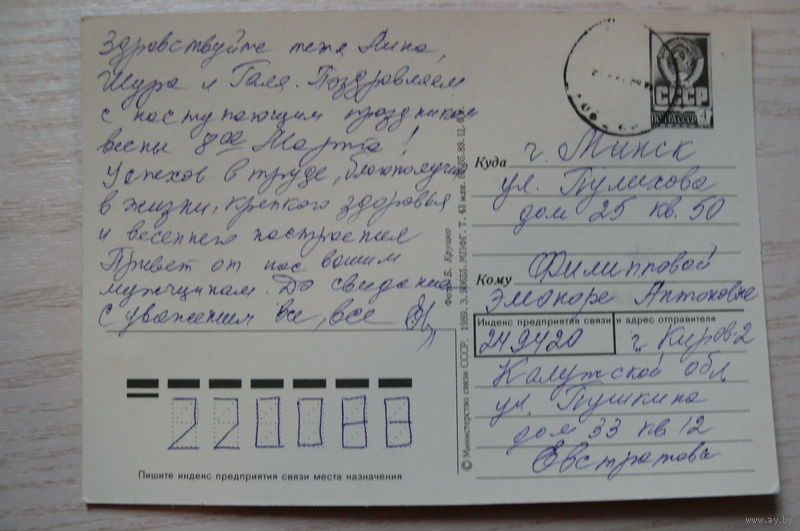 Здравствуйте тетя Лина,
Шура и Галя. Поздравляем
с наступающим праздником
весны 8ое Марта!
Успехов в труде, благополучия
в жизни, крепкого здоровья
и весеннего настроения
Привет от нас вашим
мужчинам. До свидания
с уважением все, все
СССР
4
Куда г. Минск
ул. Пулихова
дом 25 кв. 50
Кому Филипповой
Элеонере Антоновне
Индекс предприятия связи и адрес отправителя
249420 г. Киров-2
Калужской обл
ул. Пушкина
дом 33 кв 12
Евстратовы
220088
Пишите индекс предприятия связи места назначения
© Министерство связи СССР. 1989. З. МПФГ. Т. 43 млн. Ц.
Фото Б. Круцко
www.ay.by